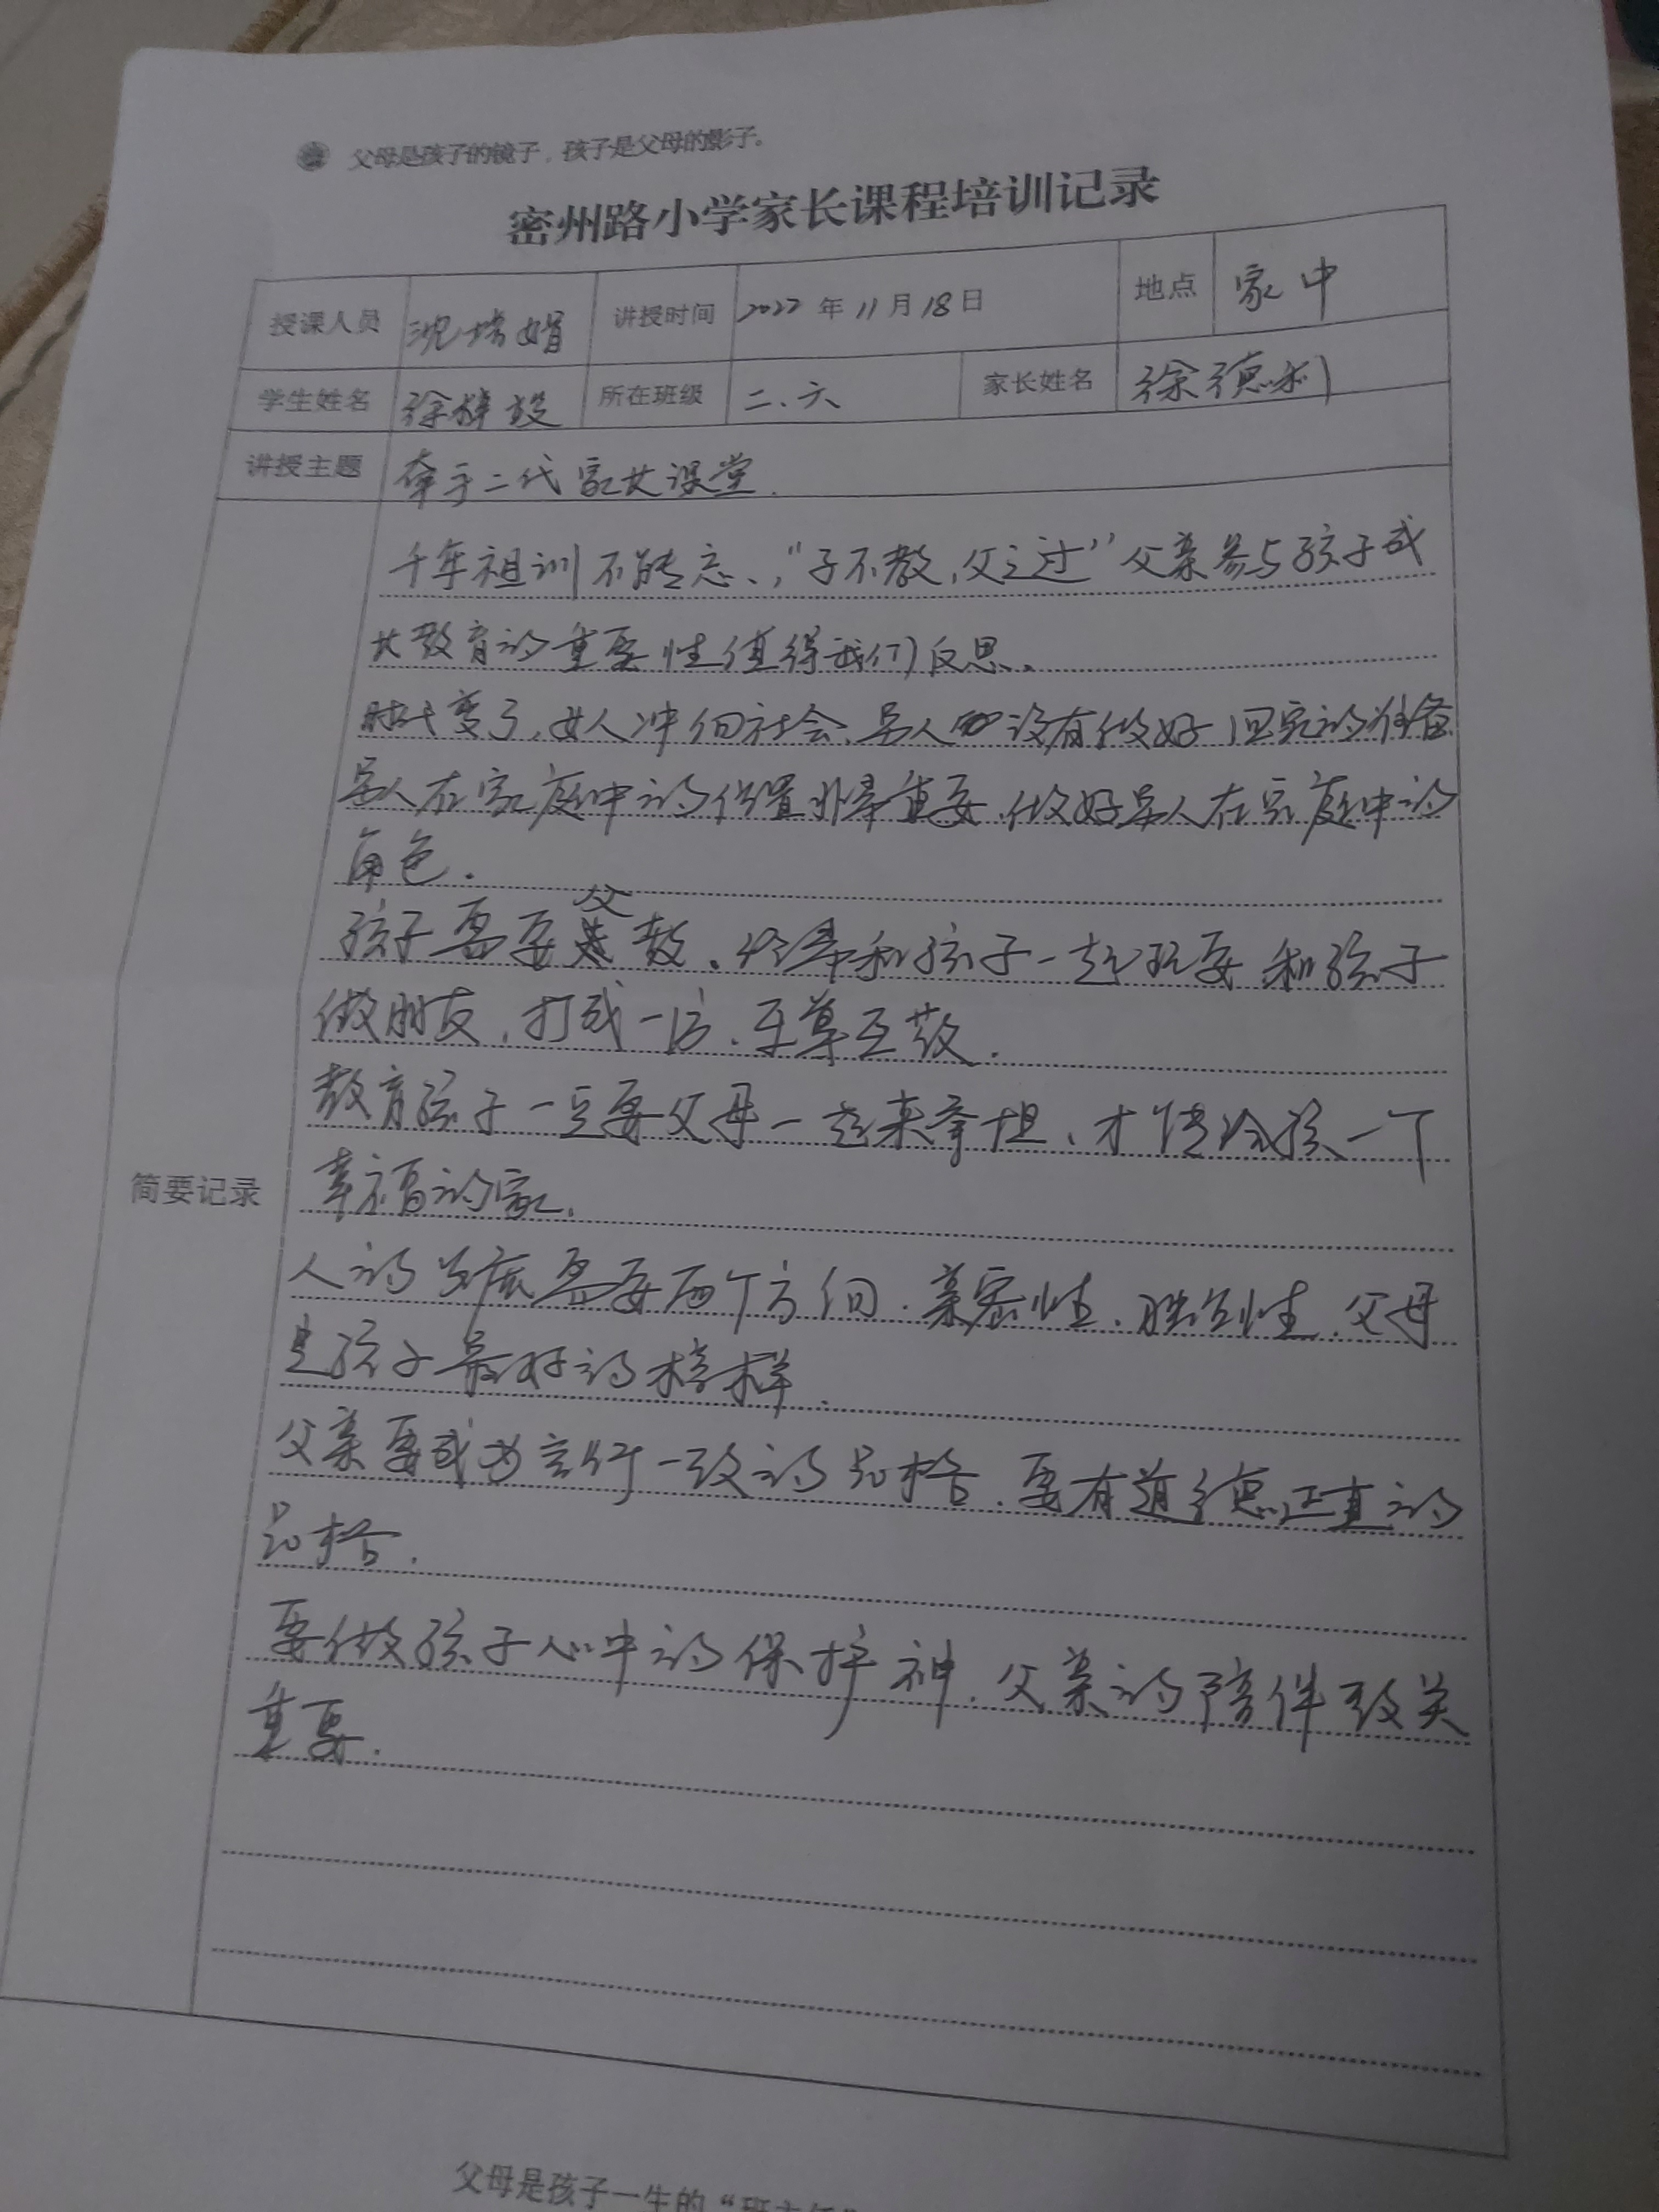 父母是孩子的镜子，孩子是父母的影子。
密州路小学家长课程培训记录
授课人员 沈 娟 讲授时间 2022年11月18日 地点 家中
学生姓名 徐梓 所在班级 二、六 家长姓名 徐德利
讲授主题 牵手二代家长课堂.
千年祖训不能忘、,"子不教,父之过"父亲参与孩子成
长教育的重要性值得我们反思。
时代变了,女人冲向社会、男人 没有做好回家的准备
男人在家庭中的位置非常重要.做好男人在家庭中的
角色.
孩子需要父教.经常和孩子一起玩耍 和孩子
做朋友,打成一片.互尊互敬.
教育孩子一定要父母一起来牵担、才能给孩一个
简要记录
幸福的家.
人的发展需要两个方向.亲密性.独立性.父母
是孩子最好的榜样.
父亲要成为言行一致的品格.要有道德正直的
品格.
要做孩子心中的保护神.父亲的陪伴致关
重要.
父母是孩子一生的"班主任"